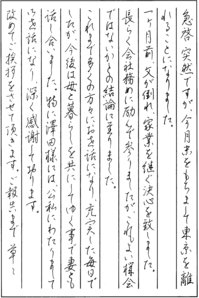 急啓 突然ですが、今月末をもちまして東京を離
れることになりました。
一ヶ月前、父が倒れ、家業を継ぐ決心を致しました。
長らく会社務めに励んで参りましたが、これもよい機会
ではないかとの結論に至りました。
これまで多くの方々にお世話になり、充実した毎日で
したが、今後は母と暮らしを共にしてゆく事で妻も
話し合いました。特に澤田様には、公私にわたりまして
お世話になり、深く感謝して居ります。
改めてご挨拶をさせて頂きます。ご報告まで 草々